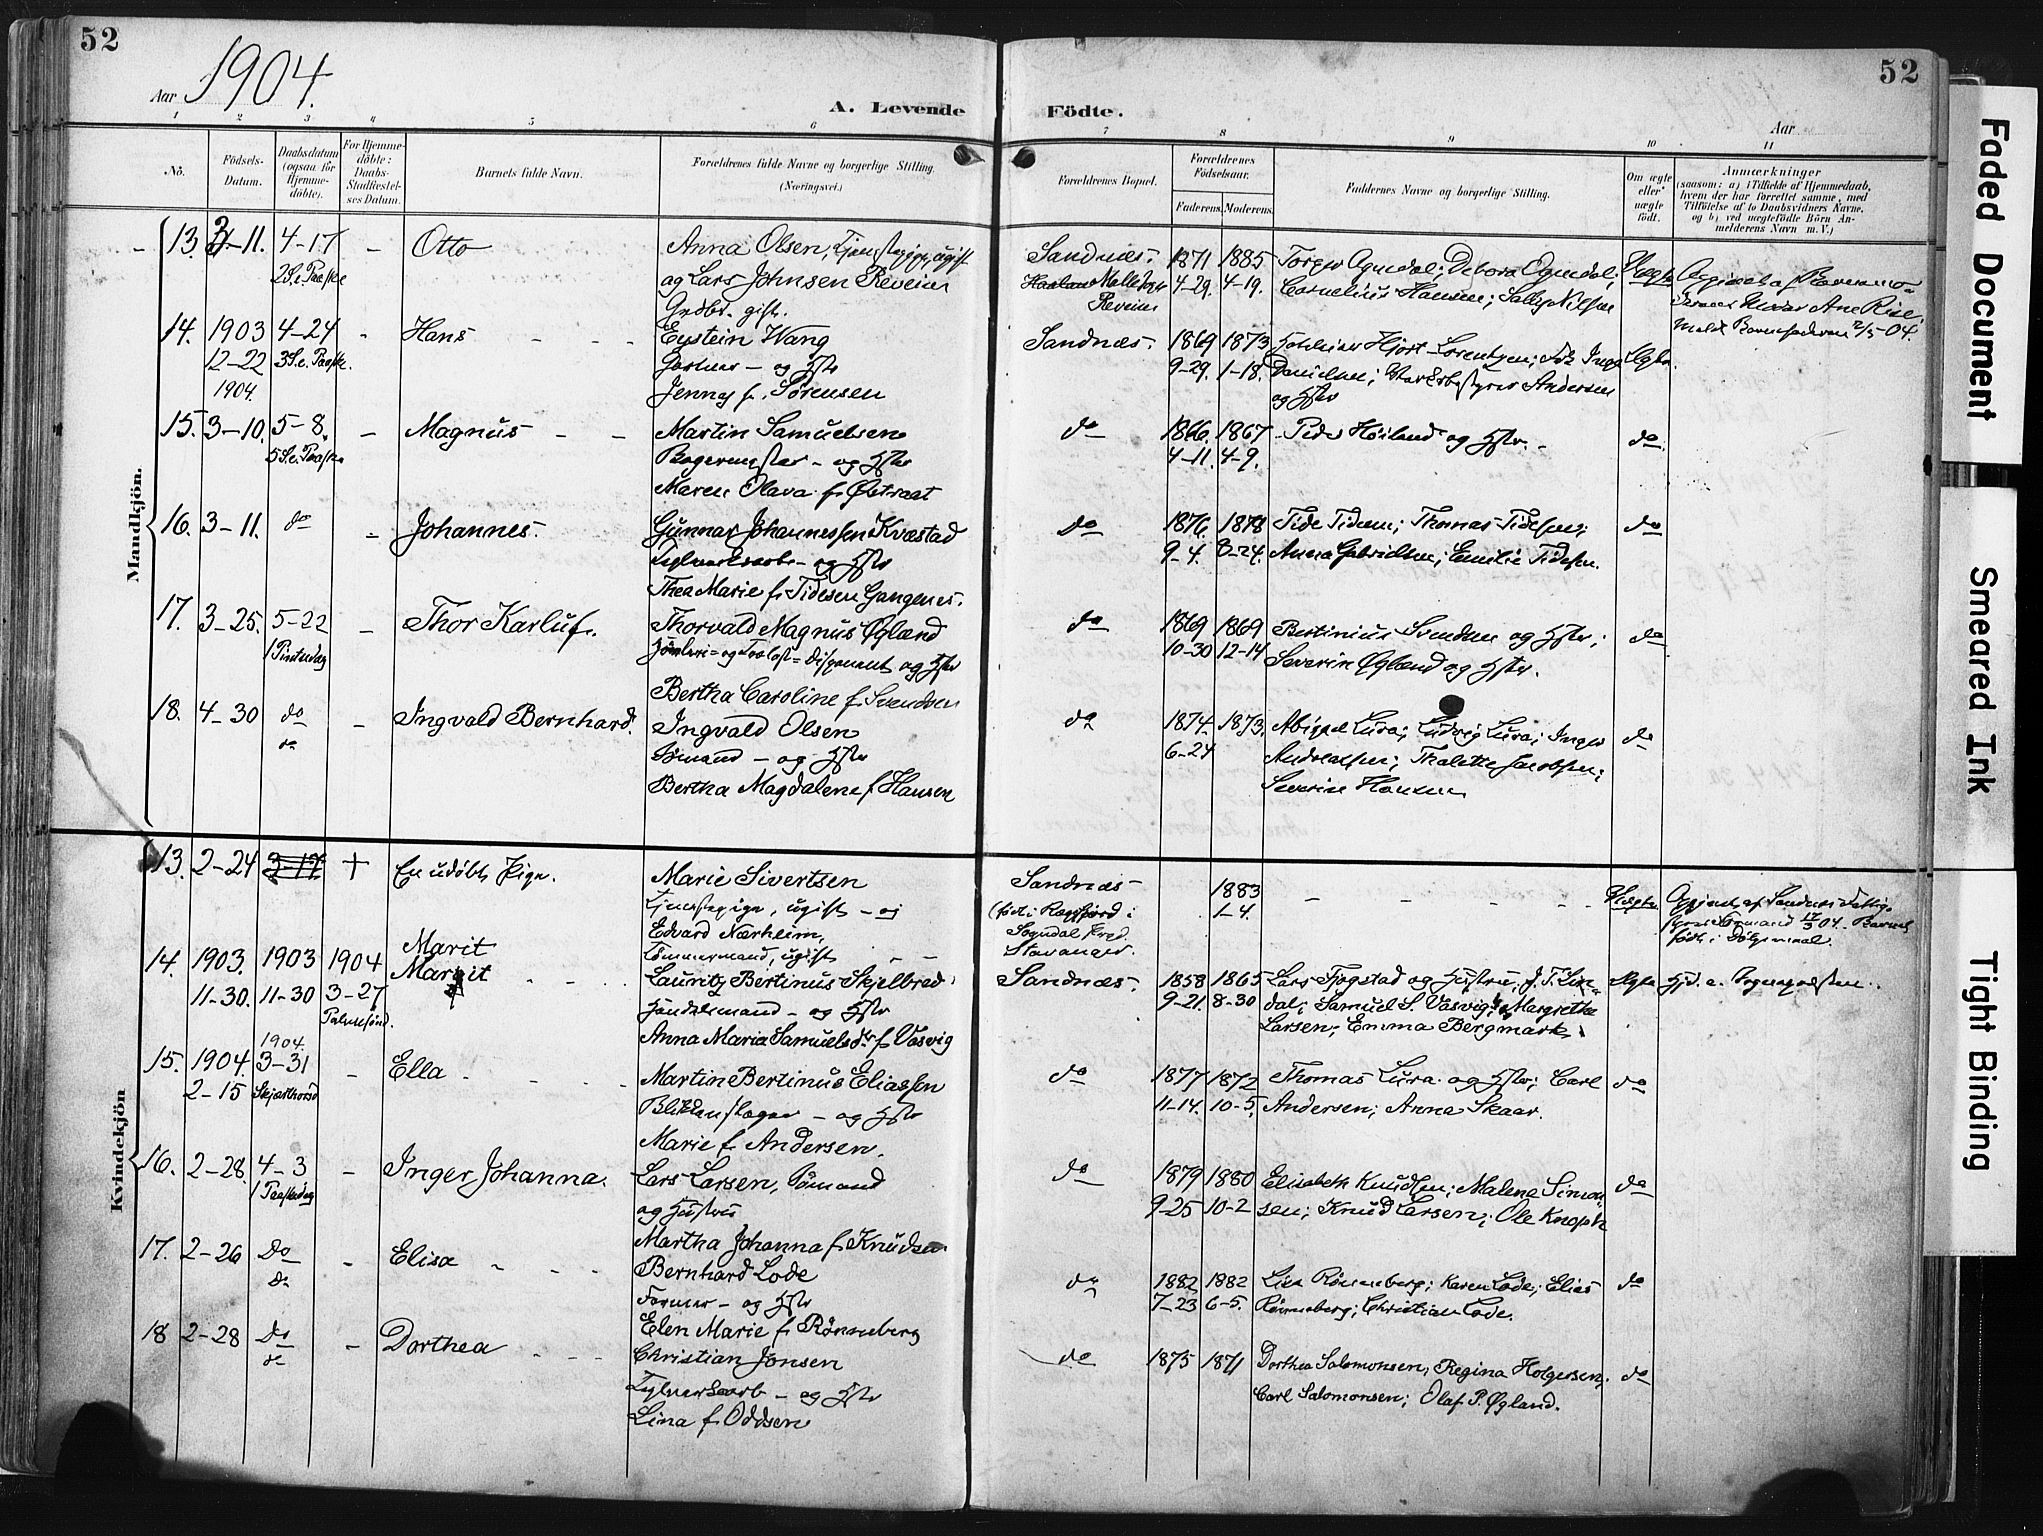 52
Aar 1904.
A. Levende
Födte.
Aar
52
1 2 3 4 5 6 7 8 9 10 11
No.
Födsels-Datum.
Daabsdatum (ogsaa for Hjemme-döbte).
For Hjemme-döbte: Daabs-Stadfæstel-ses Datum.
Barnets fulde Navn.
Forældrenes fulde Navne og borgerlige Stilling.
(Næringsvei.)
Forældrenes Bopæl.
Forældrenes Födselsaar.
Faderens. Moderens.
Faddernes Navne og borgerlige Stilling.
Om ægte eller uægte födt.
Anmærkninger
(saasom: a) i Tilfælde af Hjemmedaab,
hvem der har forrettet samme, med
Tilföielse af to Daabsvidners Navne,
og b) ved uægtefödte Börn An-
melderens Navn m. V.)
Mandkjön.
13. 3-11. 4-17 - Otto Anna Olsen, Tjenestepige, ugift Sandnæs. 1871 1885 Torger Ogndal; Debora Ogndal; Uægte
2 S. e. Paaske og Lars Johnsen Reveim 4-29. 4-19. Cornelius Hansen;
Grdbr. gift. Reveim Ane Rise,
14. 1903 4-24 - Hans Eystein Wang Sandnæs. 1869 1873 Hjort-Lorentzen;
12-22 3 S. e. Paaske. Gartner - og Hstr 9-29. 1-18. Danielsen; Andersen
1904. Jenny f. Sörensen og Hstr
15. 3-10. 5-8. - Magnus Martin Samuelsen do 1866. 1867 Peder Höiland og Hstr. do.
5 S. e. Paaske Bagermester - og Hstr 4-11. 4-9.
Maren Olava f. Østraat
16. 3-11. do - Johannes. Gunnar Johannessen Kvæstad do 1876. 1878 Thomas Tidesen; do
og Hstr 9-4. 8-24. Anna Gabrielsen; Emilie Tidesen.
Thea Marie f. Tidesen Gangenes.
17. 3-25. 5-22 - Thor Karluf. Thorvald Magnus Øglænd do 1869 1869 Bertinius Svendsen og Hstr; do
1 Pintsedag Disponent og Hstr 10-30 12-14 Severin Øglænd og Hstr.
Bertha Caroline f. Svendsen
18. 4-30 do - Ingvald Bernhard. Ingvald Olsen do 1874. 1873. Abigael Lura; Ludvig Lura; Inger do
do Sömand - og Hstr 6-24 Andreassen; Thalette Jacobsen;
Bertha Magdalene f. Hansen Severine Hansen
Kvindekjön
13. 2-24 3-17 + En udöbt Pige. Marie Sivertsen Sandnæs- 1883 - - - - - Uægte
Tjenestepige, ugift - og (föd i Ræggfjord i 1-4.
Edvard Nærheim, Sogndal Præd. 17/3 04. Barnet
Tömmermand, ugift Stavanger. född i Dölgsmaal.
14. 1903. 1903 1904 Marit Margit Lauritz Bertinus Skjelbred. Sandnæs. 1858 1865 Lars Fjogstad og Hustru; J. T. Lin- Ægte Hjd. a. Sognepræsten.
11-30. 11-30 3-27 Handelsmand - og Hstr 9-21. 8-30 dal; Samuel S. Vasvig; Margrethe
Palmesönd. Anna Maria Samuelsdr f. Vasvig Larsen; Emma Bergmark.
1904.
15. 1904. 3-31 - Ella Martin Bertinus Eliassen do 1877 1872 Thomas Lura og Hstr; Carl do
2-15 Skjærthorsd Blikkenslager - og Hstr 11-14. 10-5. Andersen; Anna Skaar.
Marie f. Andersen.
16. 2-28. 4-3 - Inger Johanna. Lars Larsen, Sömand do 1879 1880 Elisabeth Knudsen; Malena Simon- do
1 Paaskedag og Hustru 9-25 10-2 sen; Knud Larsen; Ole Knoph
Martha Johanna f. Knudsen
17. 2-26 Do - Elisa Bernhard Lode do 1882 1882 Lisa Rönneberg; Karen Lode; Elias do
do Former - og Hstr 7-23 6-5. Rönneberg; Christian Lode.
Elen Marie f. Rönneberg
18 2-28 Do - Dorthea Christian Jonsen do 1875 1871 Dorthea Salomonsen; Regina Holgersen; do
do Teglverksarb - og Hstr Carl Salomonsen; Olaf P. Øgland.
Lina f. Oddsen
Faded Document
Smeared Ink
Tight Binding